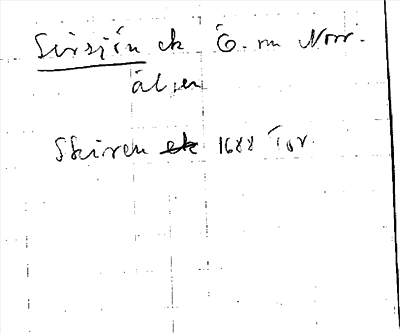 Sirsjön ek Ö. om Norr-
älven
Skiren ek 1688 Tor.